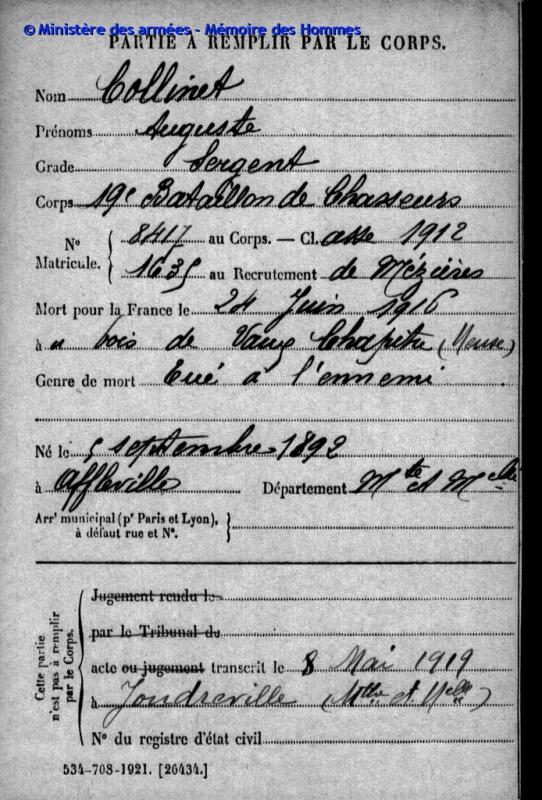 © Ministère des armées - Mémoire des Hommes
PARTIE À REMPLIR PAR LE CORPS.
Nom Collinet
Prénoms Auguste
Grade Sergent
Corps 19e Bataillon de Chasseurs
N° Matricule. { 8417 au Corps. — Cl. asse 1912
1635 au Recrutement de Mézières
Mort pour la France le 24 Juin 1916
à u bois de Vaux Chapitre (Meuse)
Genre de mort Tué à l'ennemi
Né le 5 septembre 1892
à Affleville Département Mthe et Melle
Arr^t municipal (p^r Paris et Lyon), à défaut rue et N°. }
Cette partie n'est pas à remplir par le Corps.
Jugement rendu le
par le Tribunal de
acte ou jugement transcrit le 8 Mai 1919
à Joudreville (Mthe et Melle)
N° du registre d'état civil
534-708-1921. [26434.]